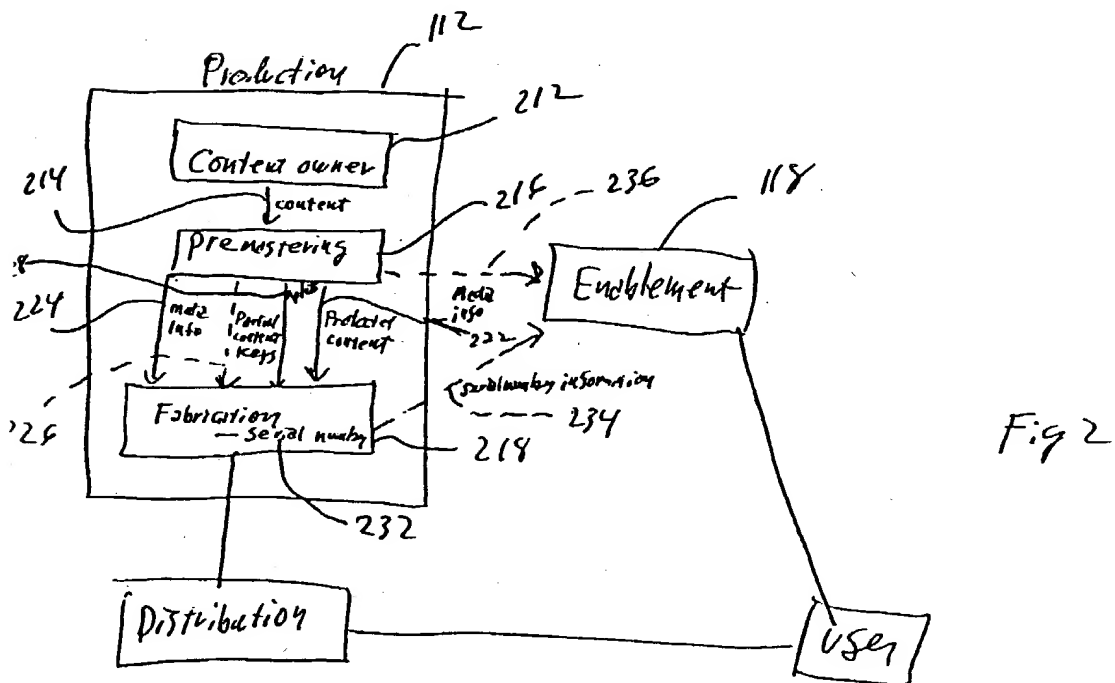 112
Production
212
Content owner
214
content
236
118
216
Premastering
Enablement
224
Meta
info
Partial
content
keys
Protected
content
Meta
info
222
Serial number information
234
Fabrication
— Serial number
218
232
Fig 2
Distribution
User